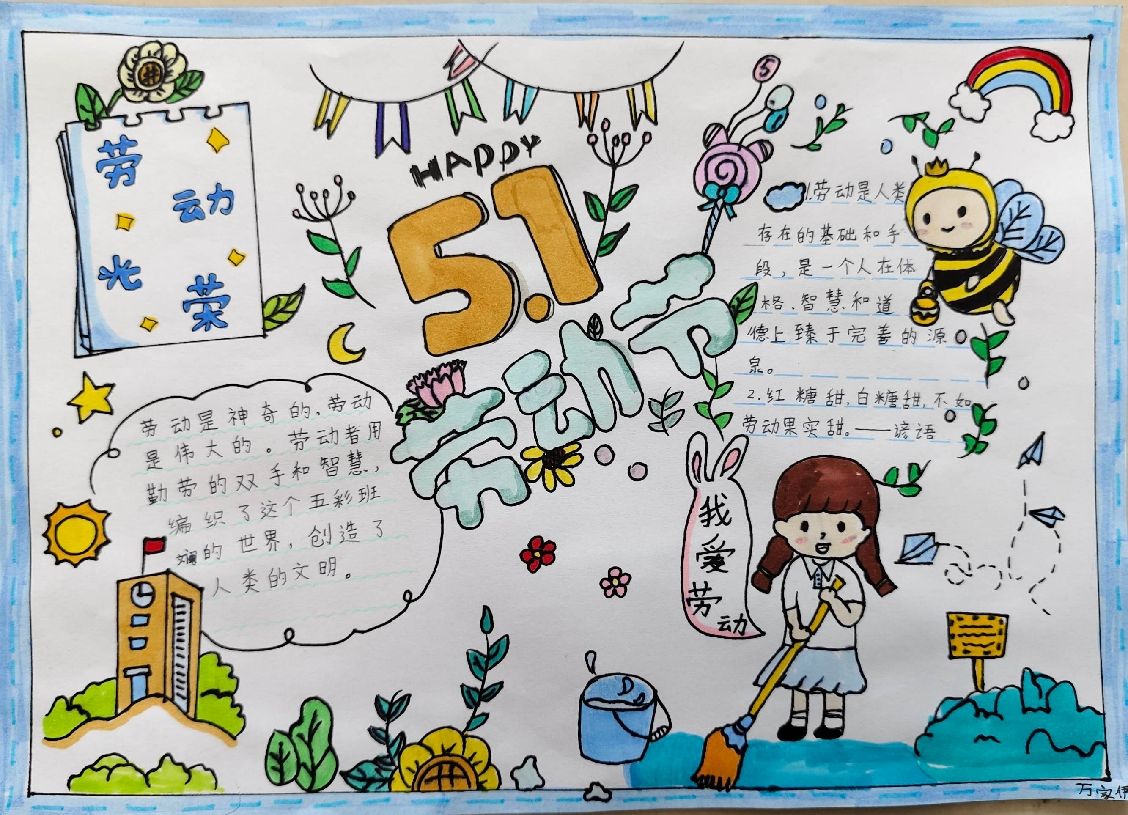 HAPPY
5.1
劳动节
劳
动
光
荣
5
1.劳动是人类
存在的基础和手
段，是一个人在体
格、智慧和道
德上臻于完善的源
泉。
2.红糖甜,白糖甜,不如
劳动果实甜。——谚语
劳动是神奇的、劳动
是伟大的。劳动者用
勤劳的双手和智慧，
编织了这个五彩班
斓的世界，创造了
人类的文明。
我
爱
劳
动
万家